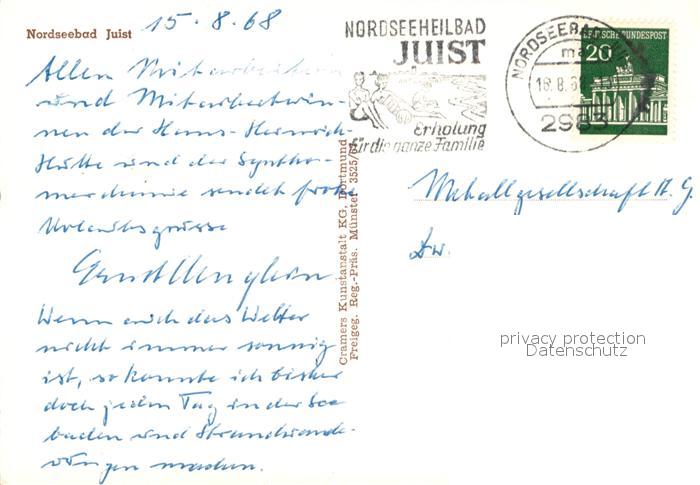 Nordseebad Juist
15.8.68
Allen Mitarbeitern
und Mitarbeiterin-
nen der Hans-Heinrich-
Hütte und der Synthe-
merchemie sendet frohe
Urlaubsgrüsse
Wenn auch das Wetter
nicht immer sonnig
ist, so konnte ich bisher
doch jeden Tag in der See
baden und Strandwande-
rungen machen.
Cramers Kunstanstalt KG. Dortmund
Freigeg. Reg.-Präs. Münster 3525/
NORDSEEHEILBAD
JUIST
Erholung
für die ganze Familie
NORDSEEBAD
18.8.68
2983
DEUTSCHE BUNDESPOST
20
Metallgesellschaft A. G.
privacy protection
Datenschutz